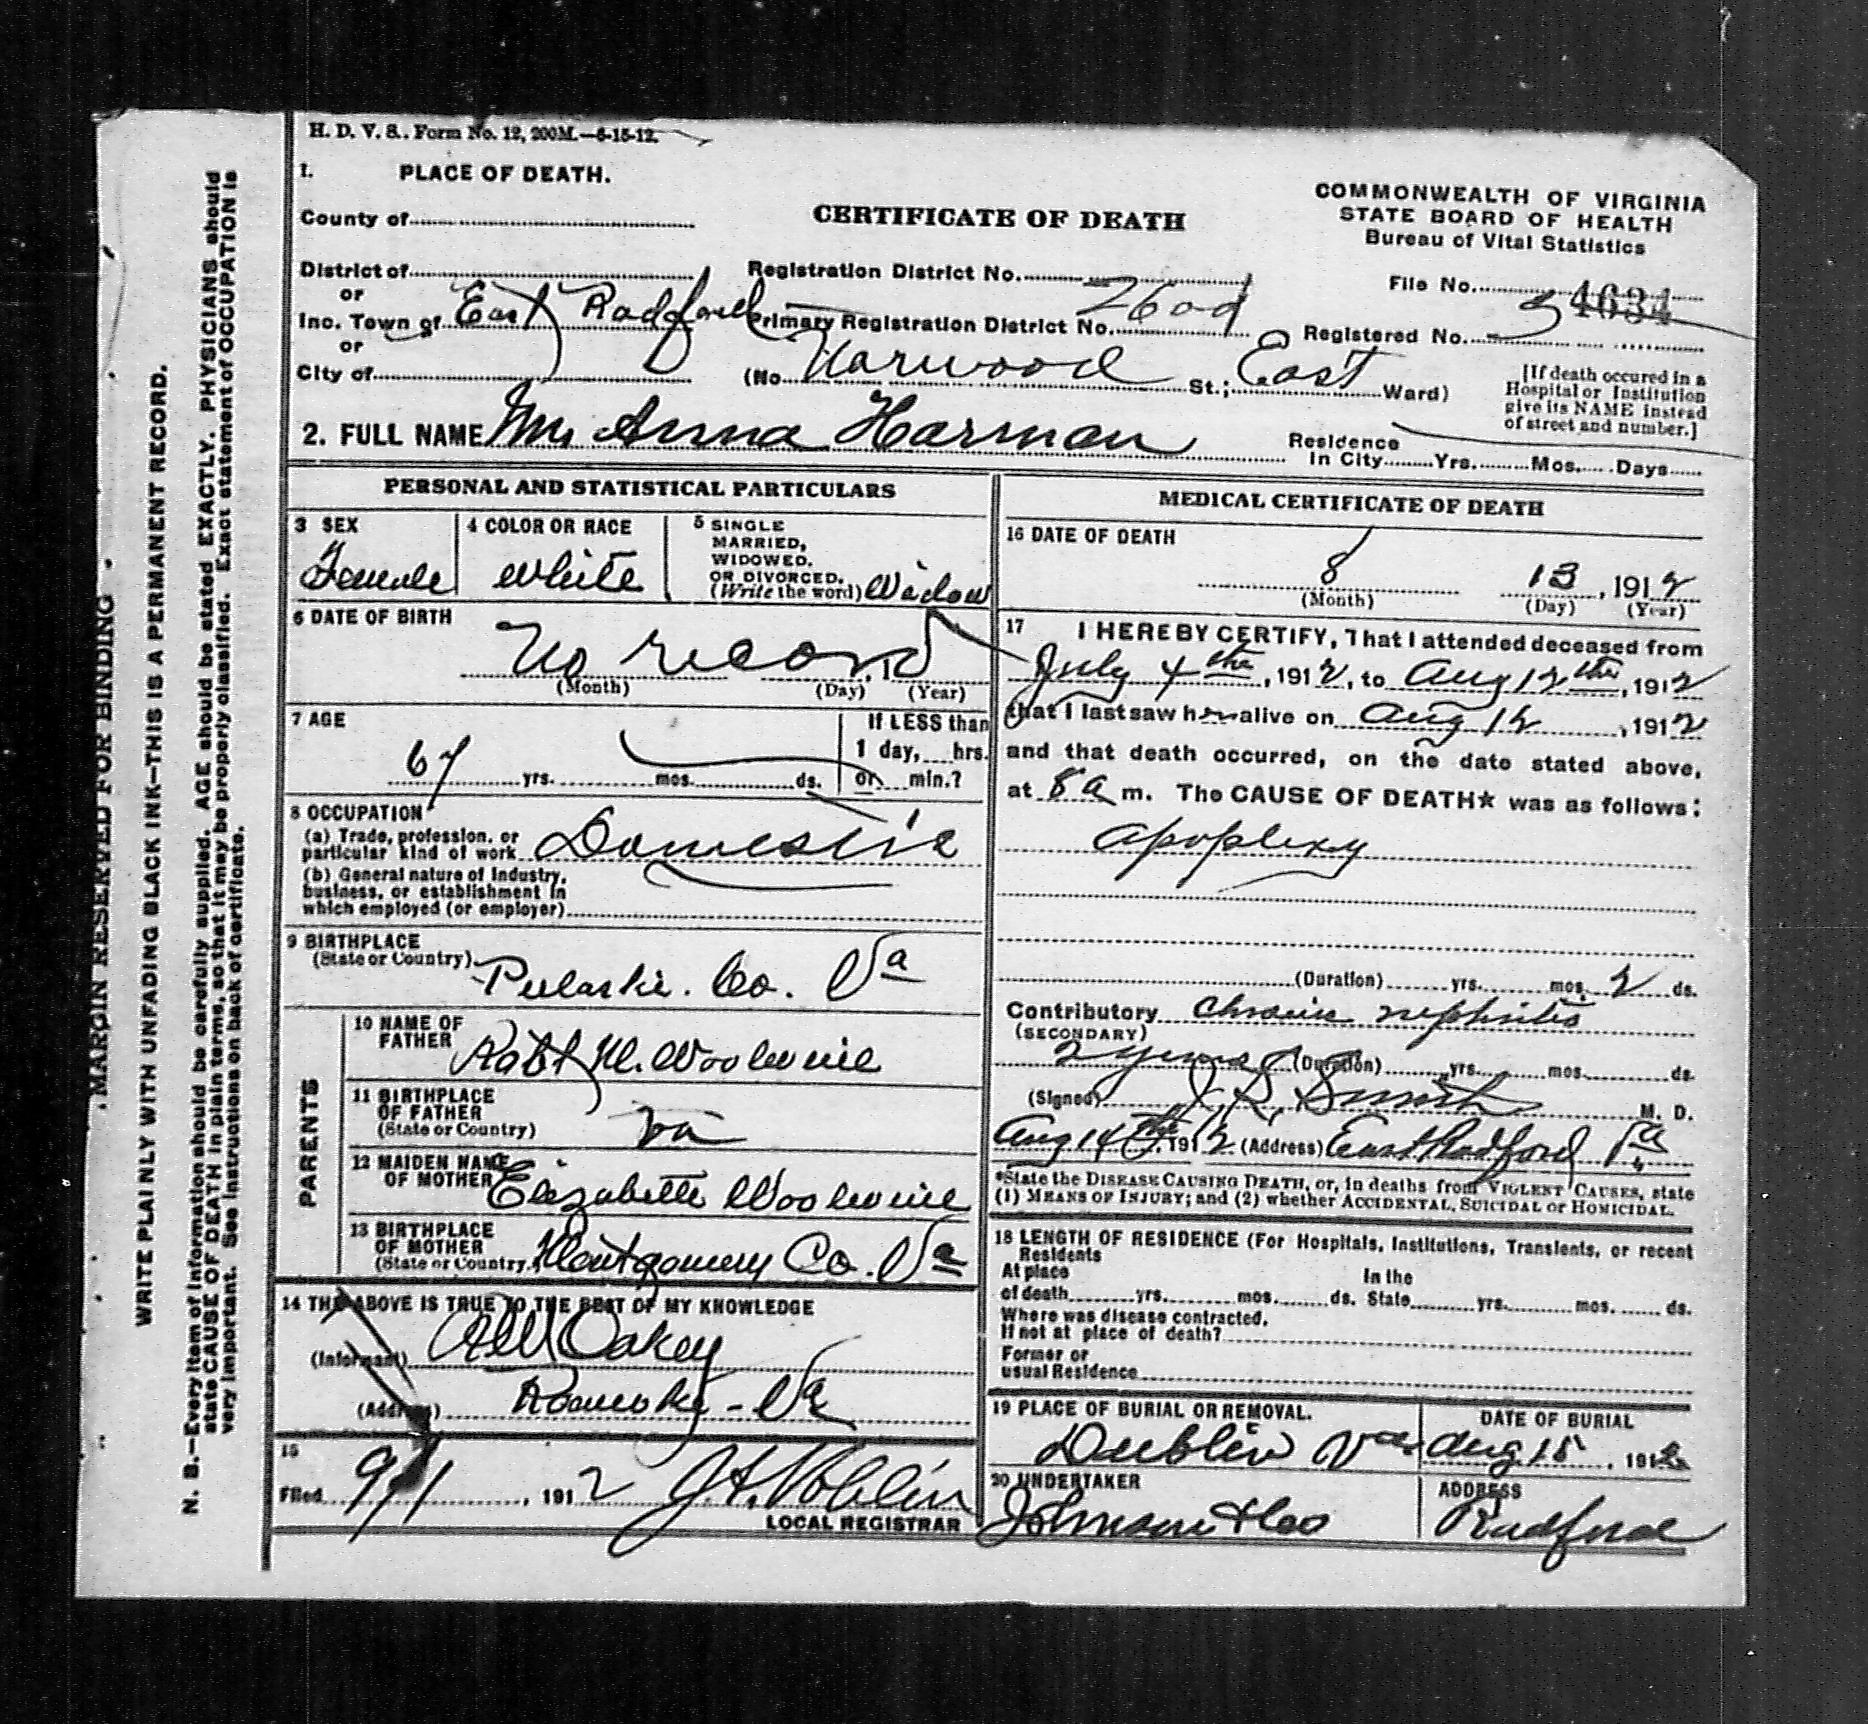 H. D. V. S.. Form No. 12, 200M.—6-15-12.
1. PLACE OF DEATH.
County of
District of
or
Inc. Town of East Radford
or
City of
CERTIFICATE OF DEATH
Registration District No.
Primary Registration District No. 2609
(No. Harwood St.; East Ward)
COMMONWEALTH OF VIRGINIA
STATE BOARD OF HEALTH
Bureau of Vital Statistics
File No. 4634
Registered No.
[If death occured in a
Hospital or Institution
give its NAME instead
of street and number.]
2. FULL NAME Mrs Anna Harman
Residence
In City Yrs. Mos. Days
PERSONAL AND STATISTICAL PARTICULARS
3 SEX
Female
4 COLOR OR RACE
White
5 SINGLE
MARRIED,
WIDOWED.
OR DIVORCED.
(Write the word) Widow
6 DATE OF BIRTH
No record
(Month) (Day) (Year)
7 AGE
67 yrs. mos. ds.
If LESS than
1 day, hrs.
or min.?
8 OCCUPATION
(a) Trade, profession, or
particular kind of work Domestic
(b) General nature of Industry,
business, or establishment in
which employed (or employer)
9 BIRTHPLACE
(State or Country) Pulaski. Co. Va
PARENTS
10 NAME OF
FATHER Robt M. Woolwine
11 BIRTHPLACE
OF FATHER
(State or Country) Va
12 MAIDEN NAME
OF MOTHER Elizabeth Woolwine
13 BIRTHPLACE
OF MOTHER
(State or Country. Montgomery Co. Va
14 THE ABOVE IS TRUE TO THE BEST OF MY KNOWLEDGE
(Informant) Oakey
(Address) Roanoke - Va
15
Filed 9/1, 1912
LOCAL REGISTRAR
MEDICAL CERTIFICATE OF DEATH
16 DATE OF DEATH
8 13, 1912
(Month) (Day) (Year)
17 I HEREBY CERTIFY, That I attended deceased from
July 4 the, 1912, to Aug 12 the, 1912
that I last saw her alive on Aug 12, 1912
and that death occurred, on the date stated above,
at 8 a m. The CAUSE OF DEATH* was as follows:
apoplexy
(Duration) yrs. mos. 2 ds.
Contributory Chronic nephritis
(SECONDARY)
2 years (Duration) yrs. mos. ds.
(Signed) J. R. M. D.
Aug 14 the, 1912 (Address) East Radford Va
*State the DISEASE CAUSING DEATH, or, in deaths from VIOLENT CAUSES, state
(1) MEANS OF INJURY; and (2) whether ACCIDENTAL, SUICIDAL or HOMICIDAL.
18 LENGTH OF RESIDENCE (For Hospitals, Institutions, Transients, or recent
Residents
At place
of death yrs. mos. ds.
In the
State yrs. mos. ds.
Where was disease contracted,
If not at place of death?
Former or
usual Residence
19 PLACE OF BURIAL OR REMOVAL.
Dublin Va
DATE OF BURIAL
Aug 15, 1912
20 UNDERTAKER
Johnson & Co
ADDRESS
Radford
MARGIN RESERVED FOR BINDING
WRITE PLAINLY WITH UNFADING BLACK INK—THIS IS A PERMANENT RECORD.
N. B.—Every item of information should be carefully supplied. AGE should be stated EXACTLY. PHYSICIANS should
state CAUSE OF DEATH in plain terms, so that it may be properly classified. Exact statement of OCCUPATION is
very important. See instructions on back of certificate.